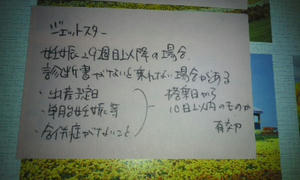 ジェットスター
妊娠29週目以降の場合
診断書がないと乗れない場合がある
・出産予定日
・単胎妊娠等
・合併症がないこと
搭乗日から
10日以内のものが
有効